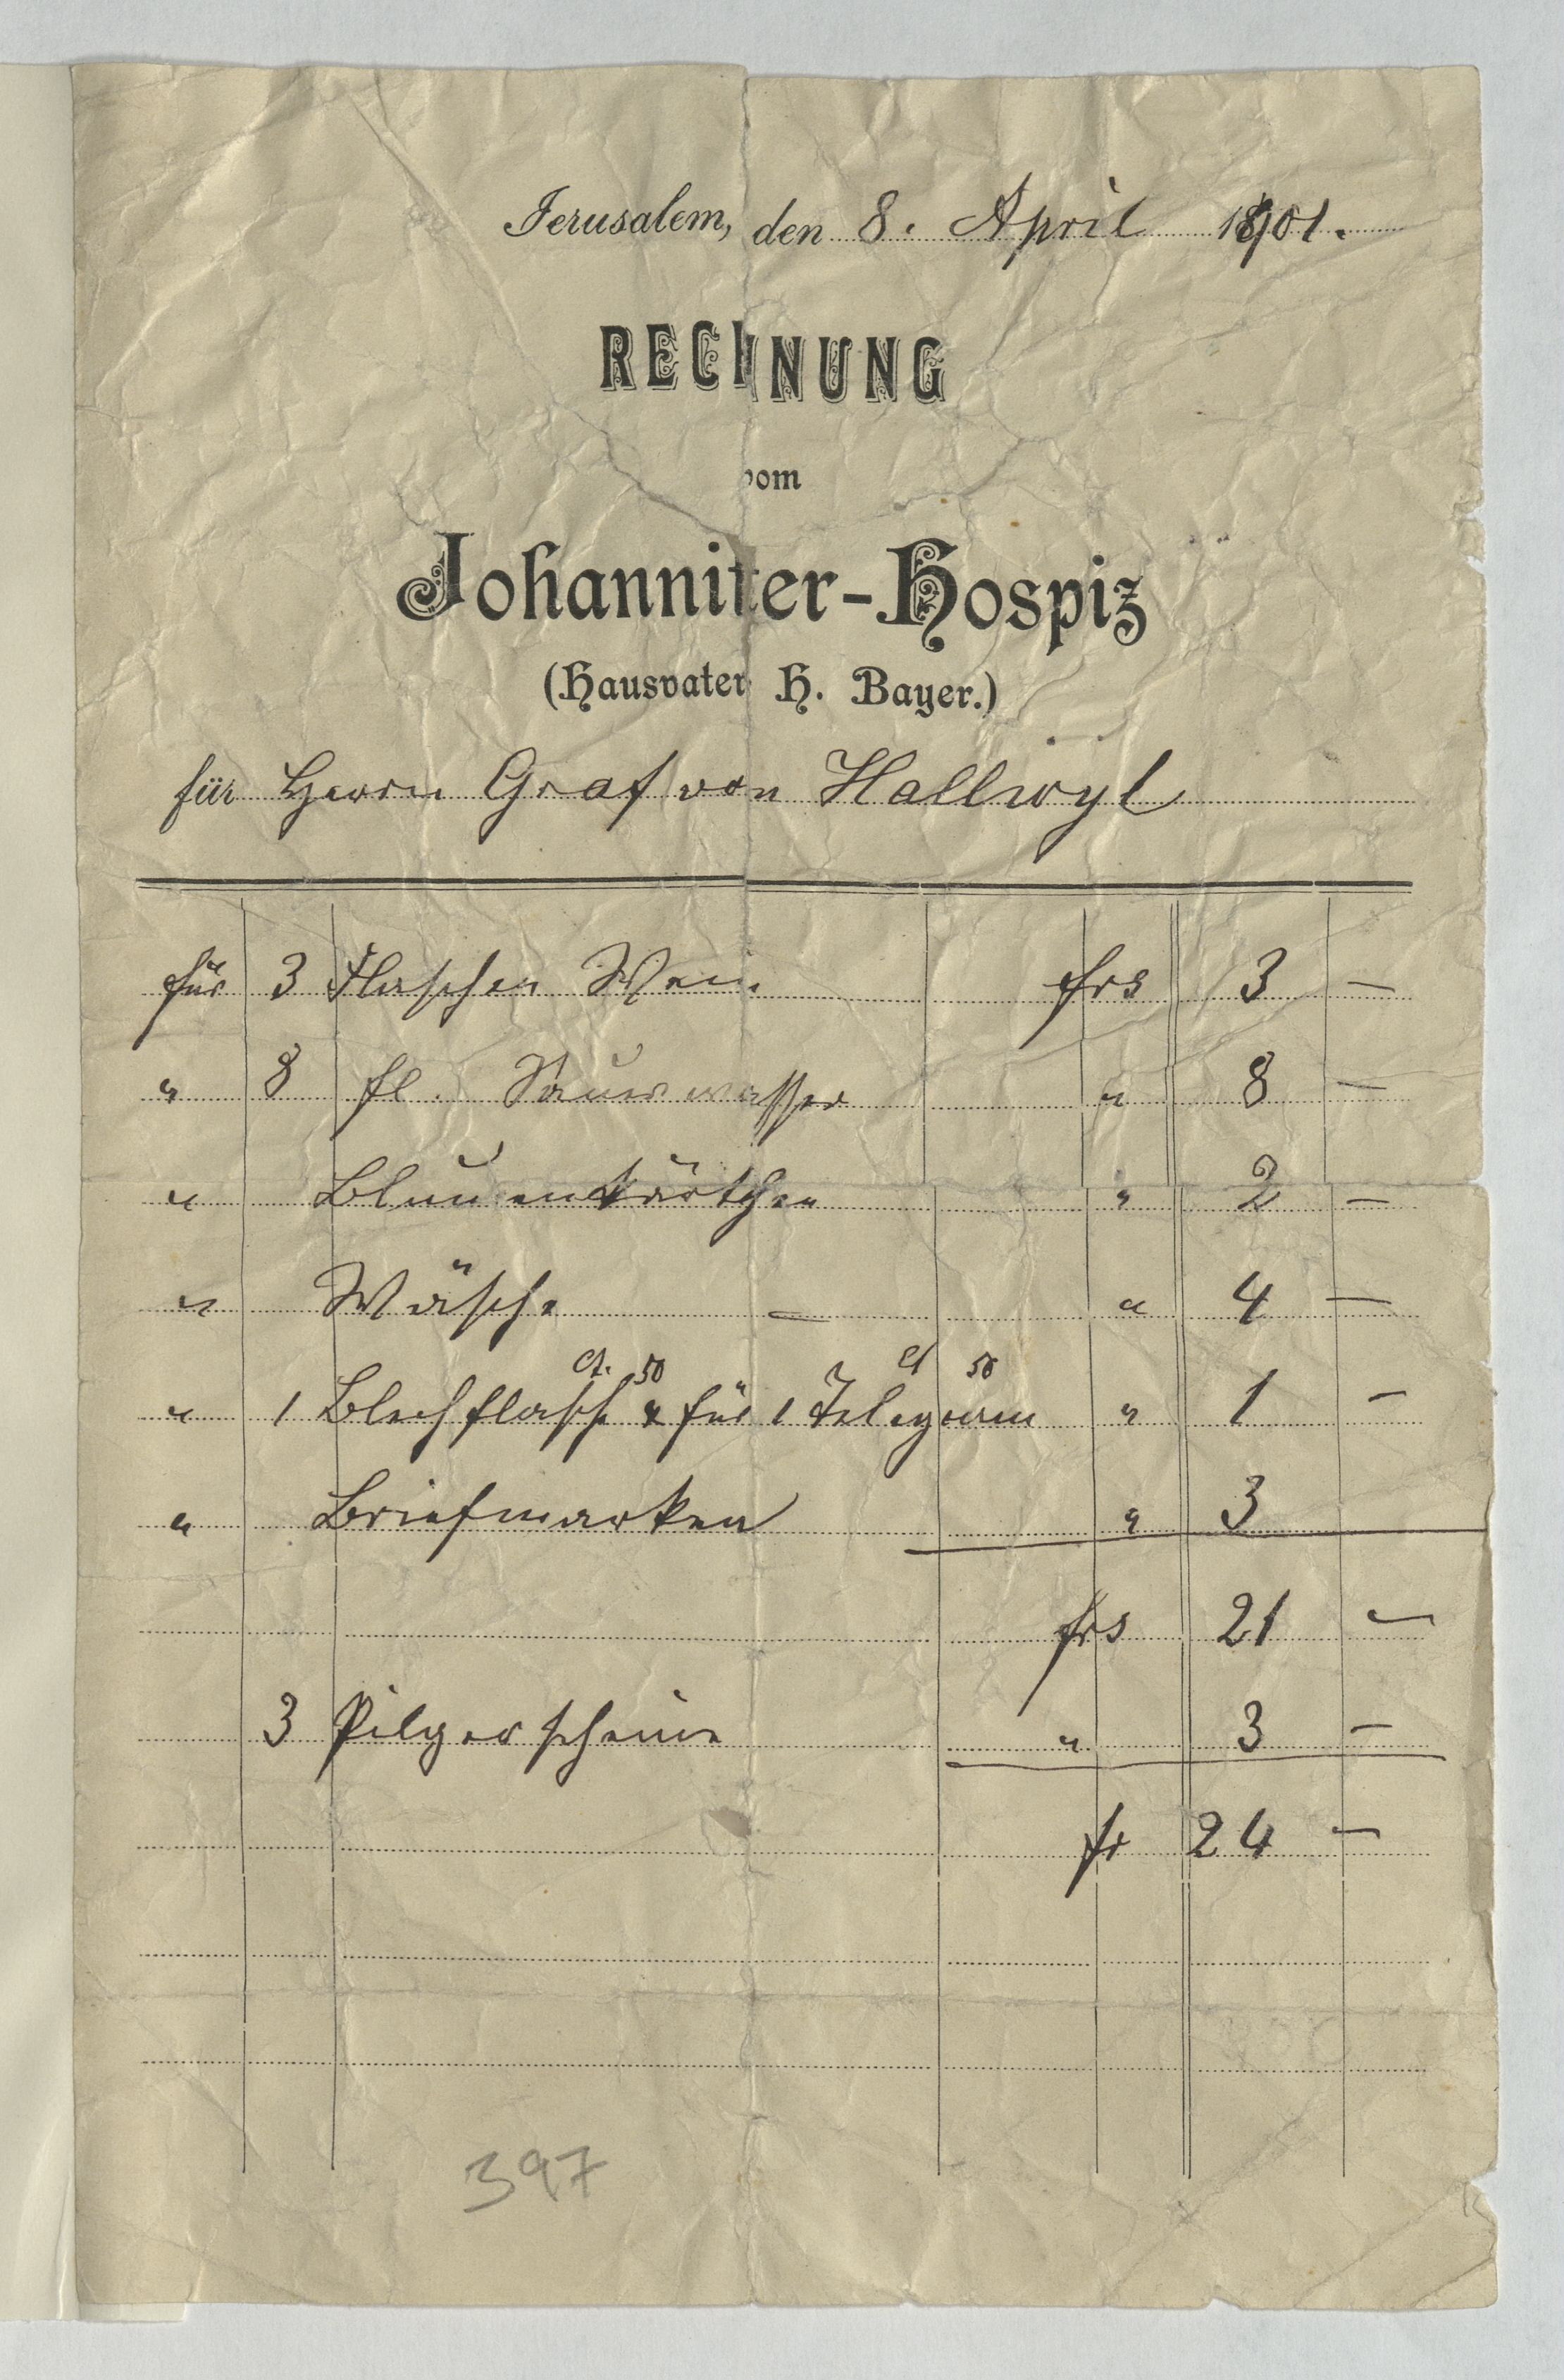 Jerusalem, den 8. April 1901.
RECHNUNG
vom
Johanniter-Hospiz
(Hausvater H. Bayer.)
für Herrn Graf von Hallwyl
für 3 Flaschen Wein frs 3 —
" 8 fl. Sauerwasser " 8 —
" Blumenkärtchen " 2 —
" Wäsche — " 4 —
ct. 50 ct 50
" 1 Blechflasche & für 1 Telegramm " 1 —
" Briefmarken " 3
frs 21 —
3 Pilgerscheine " 3 —
fr 24 —
397